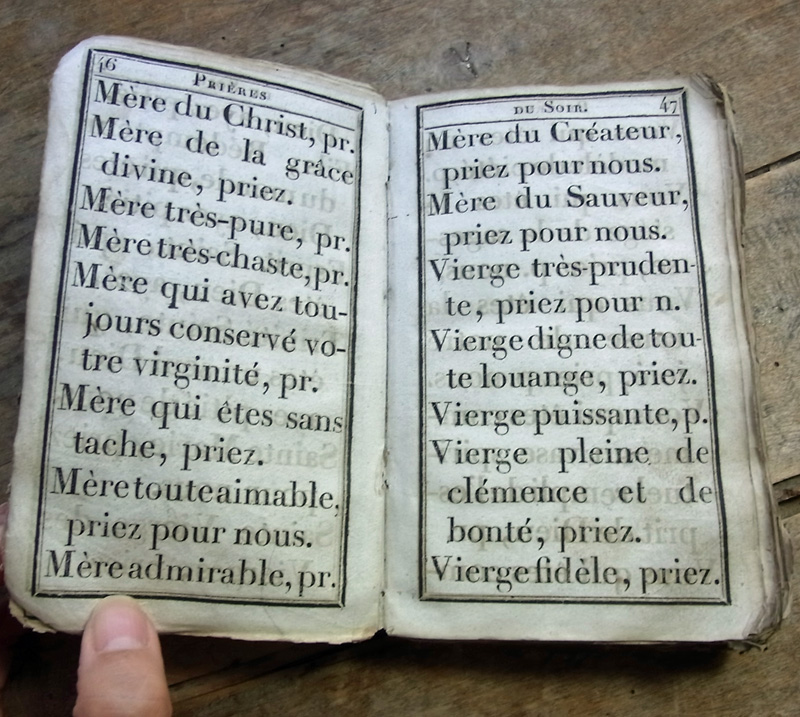 46
PRIÈRES
Mère du Christ, pr.
Mère de la grâce
divine, priez.
Mère très-pure, pr.
Mère très-chaste, pr.
Mère qui avez tou-
jours conservé vo-
tre virginité, pr.
Mère qui êtes sans
tache, priez.
Mère toute aimable,
priez pour nous.
Mère admirable, pr.
DU SOIR. 47
Mère du Créateur,
priez pour nous.
Mère du Sauveur,
priez pour nous.
Vierge très-pruden-
te, priez pour n.
Vierge digne de tou-
te louange, priez.
Vierge puissante, p.
Vierge pleine de
clémence et de
bonté, priez.
Vierge fidèle, priez.